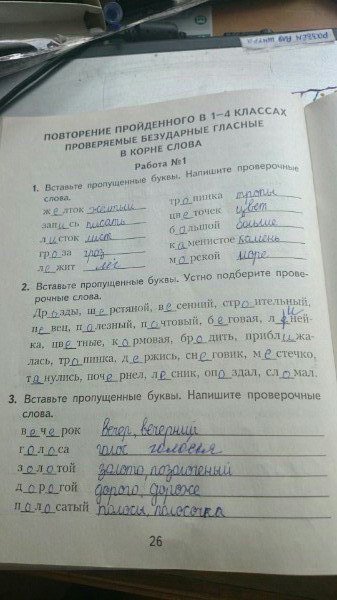 РАЗБЕЙ НА ШНУРА
ПОВТОРЕНИЕ ПРОЙДЕННОГО В 1–4 КЛАССАХ
ПРОВЕРЯЕМЫЕ БЕЗУДАРНЫЕ ГЛАСНЫЕ
В КОРНЕ СЛОВА
Работа №1
1. Вставьте пропущенные буквы. Напишите проверочные
слова.
желток желтый
тропинка тропы
запись писать
цветочек цвет
листок лист
большой больше
гроза гроз
каменистое камень
лежит лёг
морской море
2. Вставьте пропущенные буквы. Устно подберите прове-
рочные слова.
Дрозды, шерстяной, весенний, строительный,
певец, полезный, почтовый, беговая, линей-
ка, цветные, кормовая, бродить, приближа-
лась, тропинка, держись, снеговик, местечко,
тянулись, почернел, лесник, опоздал, сломал.
3. Вставьте пропущенные буквы. Напишите проверочные
слова.
вечерок вечер, вечерний
голоса голос голосья
золотой золото, позолоченый
дорогой дорого, дороже
полосатый полосы, полосочка
26